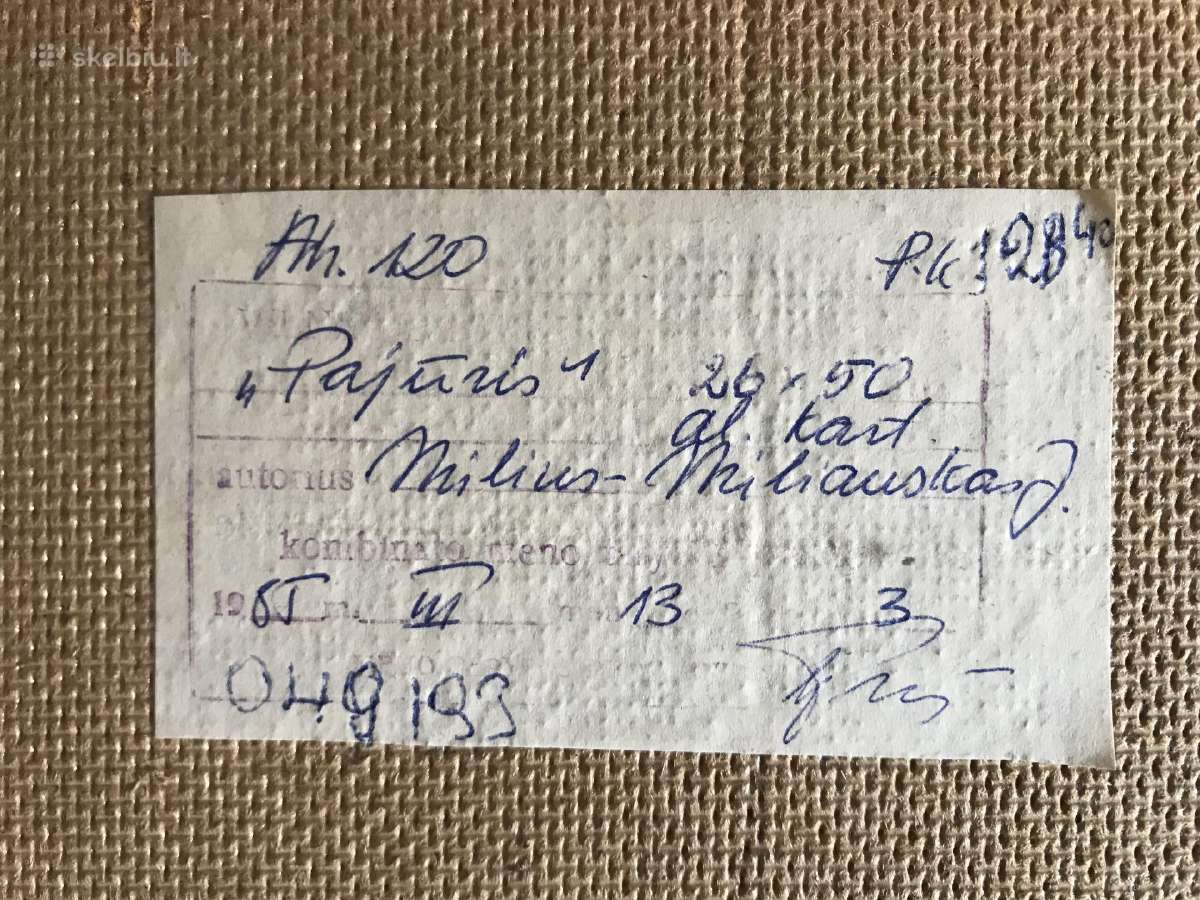 skelbiu.lt
Ah. 120 P.k. 128 40
„Pajūris“ 26 x 50
al. kart.
autorius Milius-Miliauskas J.
kombinato meno
19 m. III 13 3
049193